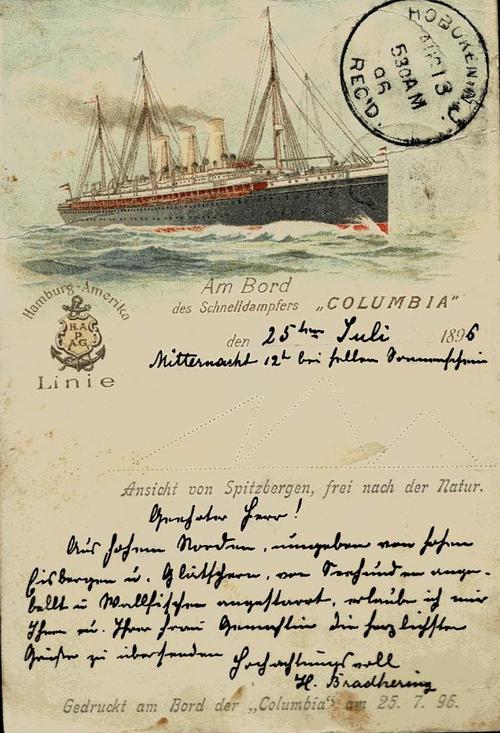 HOBOKEN, N.J.
AUG 13
530AM
96
REC'D.
Am Bord
des Schnelldampfers „COLUMBIA“
Hamburg-Amerika
H.A.
P.
A.G.
Linie
den 25ten Juli 1896
Mitternacht 12h bei hellem Sonnenschein
Ansicht von Spitzbergen, frei nach der Natur.
Geehrter Herr!
Aus hohem Norden, umgeben von hohen
Eisbergen u. Glätschern, von Seehunden ange-
bellt u Wallfischen angestarrt, erlaube ich mir
Ihnen u. Ihrer Frau Gemahlin die herzlichsten
Grüße zu übersenden Hochachtungsvoll
H. Bradhering
Gedruckt am Bord der „Columbia“ am 25. 7. 96.